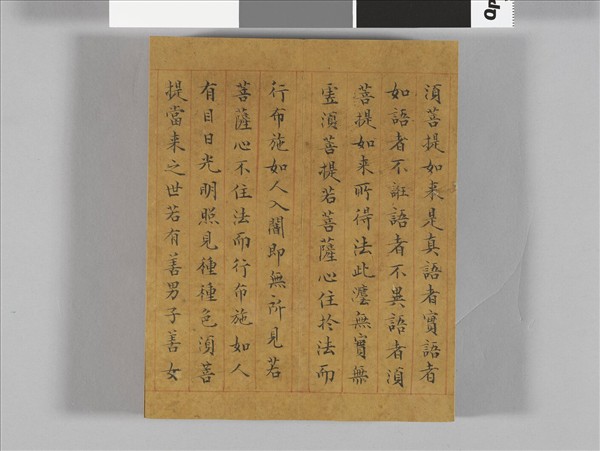 湏菩提如来是真語者實語者
如語者不誑語者不異語者湏
菩提如来所得法此灋無實無
虗湏菩提若菩薩心住扵法而
行布施如人入闇即無所見若
菩薩心不住法而行布施如人
有目日光明照見種種色湏菩
提當来之世若有善男子善女